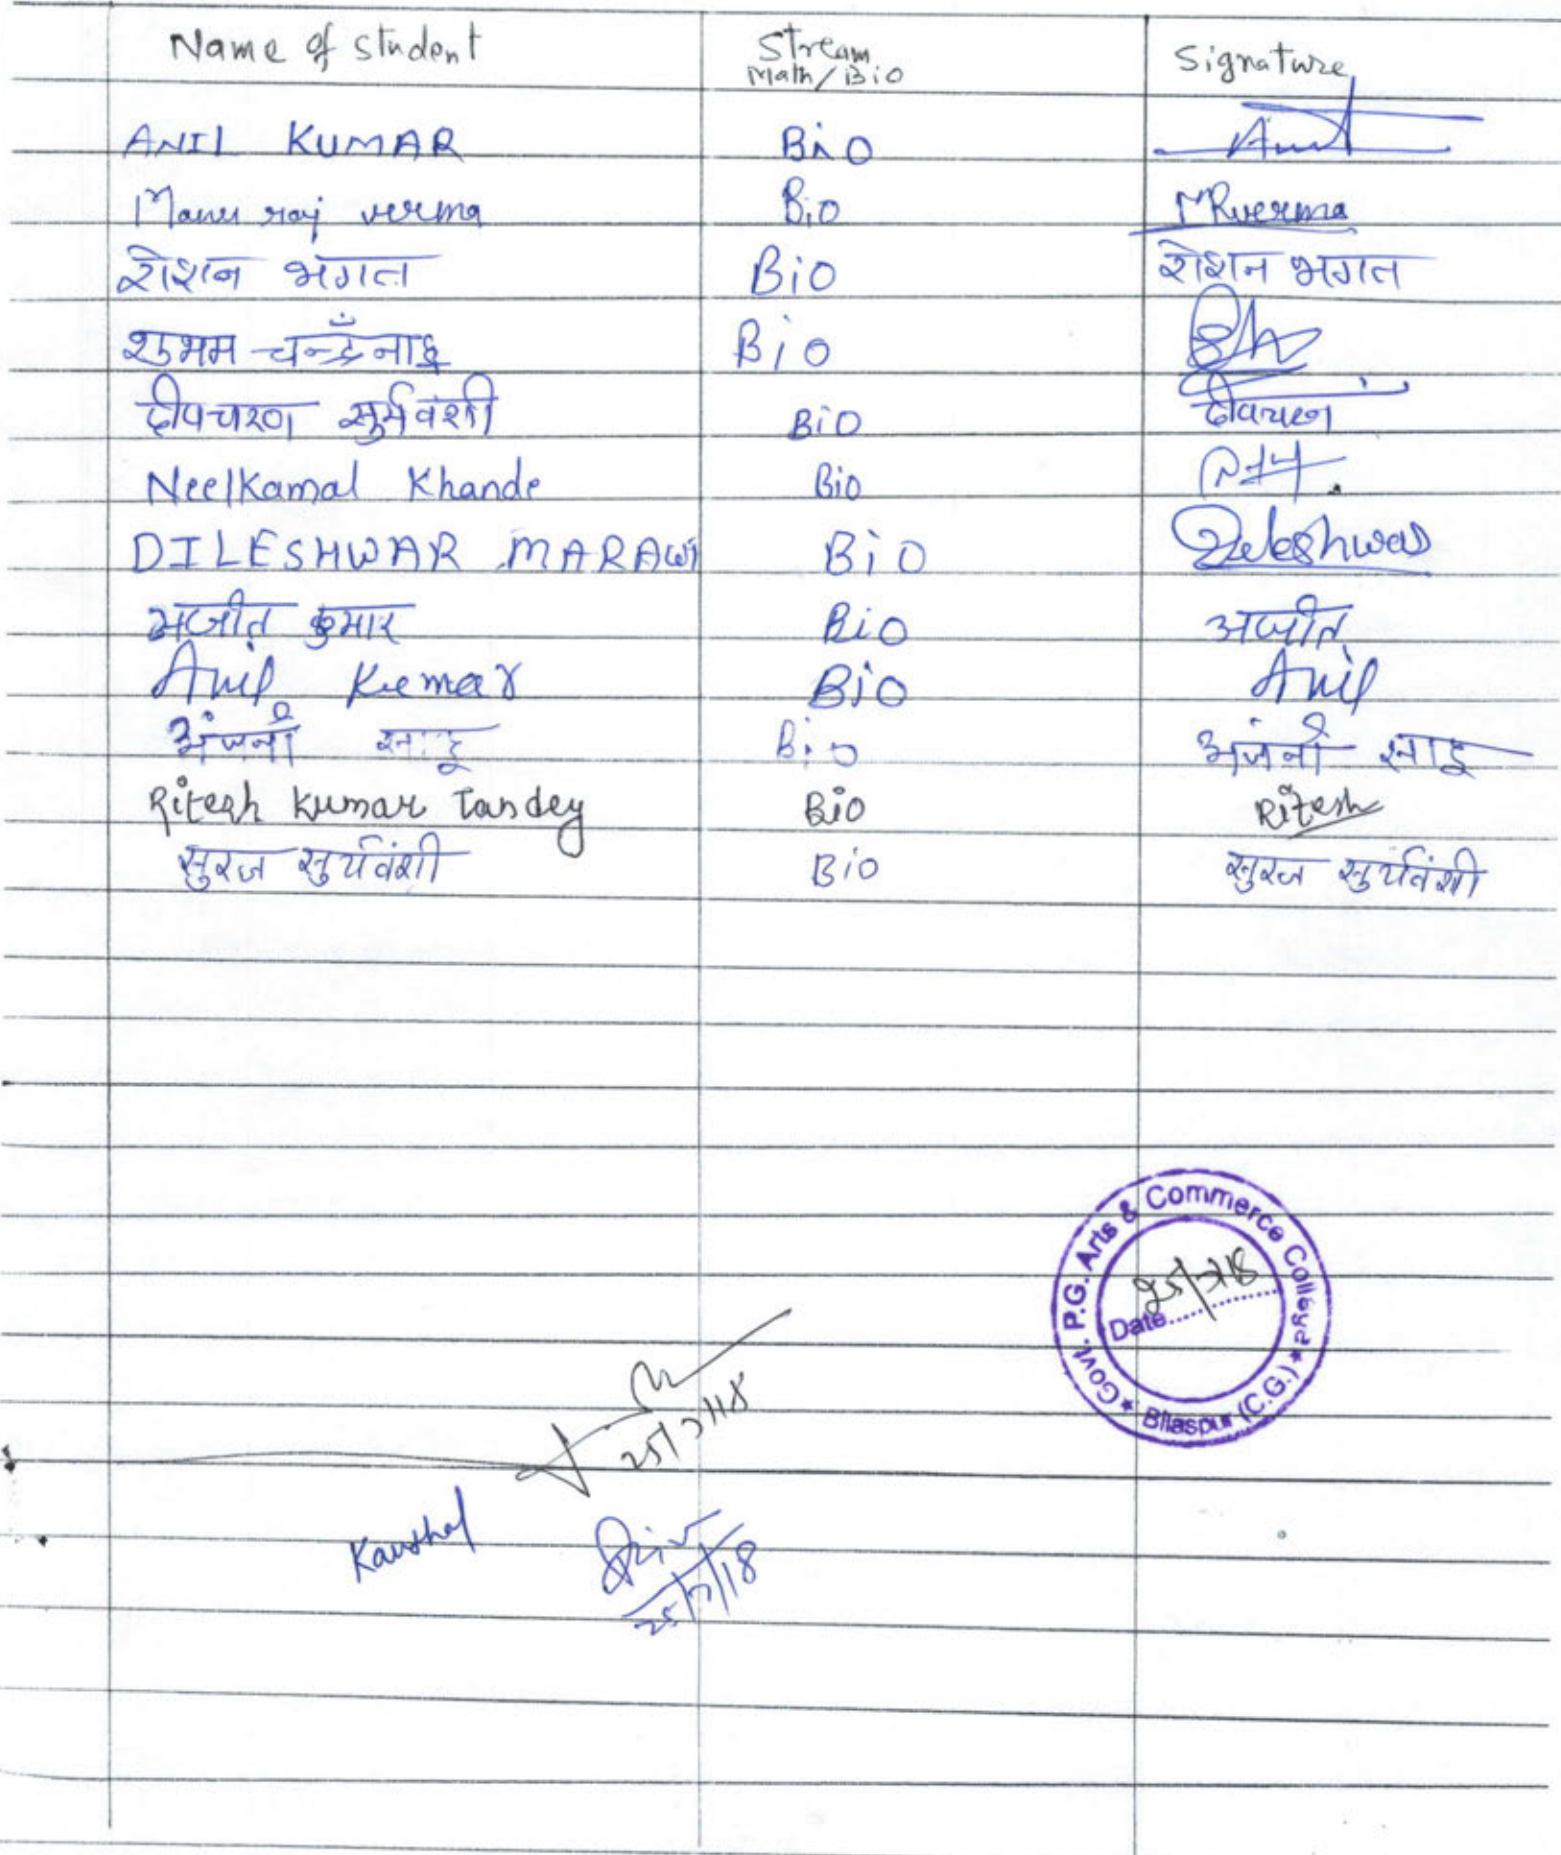 Name of student Stream Signature
Math/Bio
ANIL KUMAR Bio Anil
Manu raj verma Bio MRverma
रोशन भगत Bio रोशन भगत
शुभम चन्द्रँनाहु Bio
दीपचरण सुर्यवंशी Bio दीपचरण
Neelkamal Khande Bio
DILESHWAR MARAWI Bio Dileshwar
अजीत कुमार Bio अजीत
Anil Kumar Bio Anil
अंजनी साहू Bio अंजनी साहू
Ritesh Kumar Tandey Bio Ritesh
सुरज सुर्यवंशी Bio सुरज सुर्यवंशी
Govt. P.G. Arts & Commerce College ★ Bilaspur (C.G.) ★
Date...... 25/7/18
25/7/18
Kaushal
25/7/18